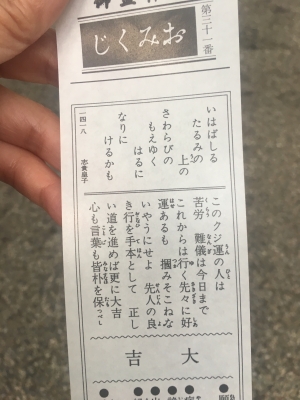 第三十一番
おみくじ
いはばしる
たるみの
上の
さわらびの
もえゆく
はるに
なりに
けるかも
一四一八
志貴皇子
このクジ運の人は
苦労 難儀は今日まで
これからは行く先々に好
運あるも 摑みそこねな
いやうにせよ 先人の良
き行を手本として 正し
い道を進めば更に大吉
心も言葉も皆朴を保つべし
大吉